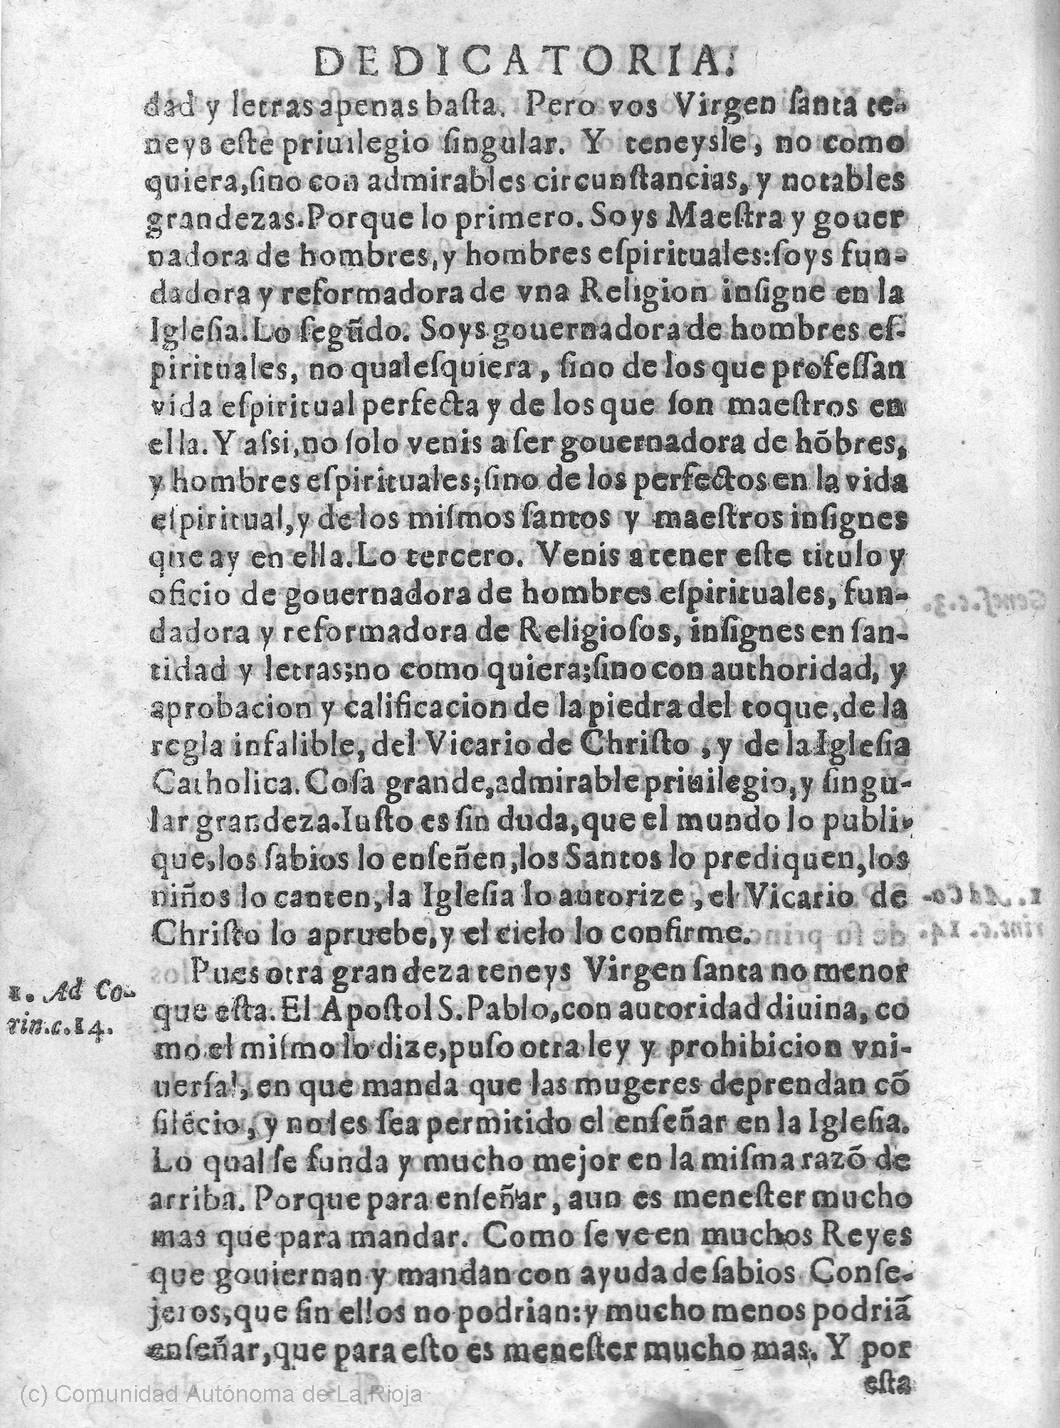 DEDICATORIA.
dad y letras apenas basta. Pero vos Virgen santa te-
neys este priuilegio singular. Y teneysle, no como
quiera, sino con admirables circunstancias, y notables
grandezas. Porque lo primero. Soys Maestra y gouer
nadora de hombres, y hombres espirituales: soys fun-
dadora y reformadora de vna Religion insigne en la
Iglesia. Lo segũdo. Soys gouernadora de hombres es-
pirituales, no qualesquiera, sino de los que professan
vida espiritual perfecta y de los que son maestros en
ella. Y assi, no solo venis a ser gouernadora de hõbres,
y hombres espirituales; sino de los perfectos en la vida
espiritual, y de los mismos santos y maestros insignes
que ay en ella. Lo tercero. Venis a tener este titulo y
oficio de gouernadora de hombres espirituales, fun-
dadora y reformadora de Religiosos, insignes en san-
tidad y letras; no como quiera; sino con authoridad, y
aprobacion y calificacion de la piedra del toque, de la
regla infalible, del Vicario de Christo, y de la Iglesia
Catholica. Cosa grande, admirable priuilegio, y singu-
lar grandeza. Iusto es sin duda, que el mundo lo publi-
que, los sabios lo enseñen, los Santos lo prediquen, los
niños lo canten, la Iglesia lo autorize, el Vicario de
Christo lo apruebe, y el cielo lo confirme.
Pues otra grandeza teneys Virgen santa no menor
1. Ad Co-
rin.c.14.
que esta. El Apostol S. Pablo, con autoridad diuina, co
mo el mismo lo dize, puso otra ley y prohibicion vni-
uersal, en que manda que las mugeres deprendan cõ
silẽcio, y no les sea permitido el enseñar en la Iglesia.
Lo qual se funda y mucho mejor en la misma razõ de
arriba. Porque para enseñar, aun es menester mucho
mas que para mandar. Como se ve en muchos Reyes
que gouiernan y mandan con ayuda de sabios Conse-
jeros, que sin ellos no podrian: y mucho menos podriã
enseñar, que para esto es menester mucho mas. Y por
esta
(c) Comunidad Autónoma de La Rioja